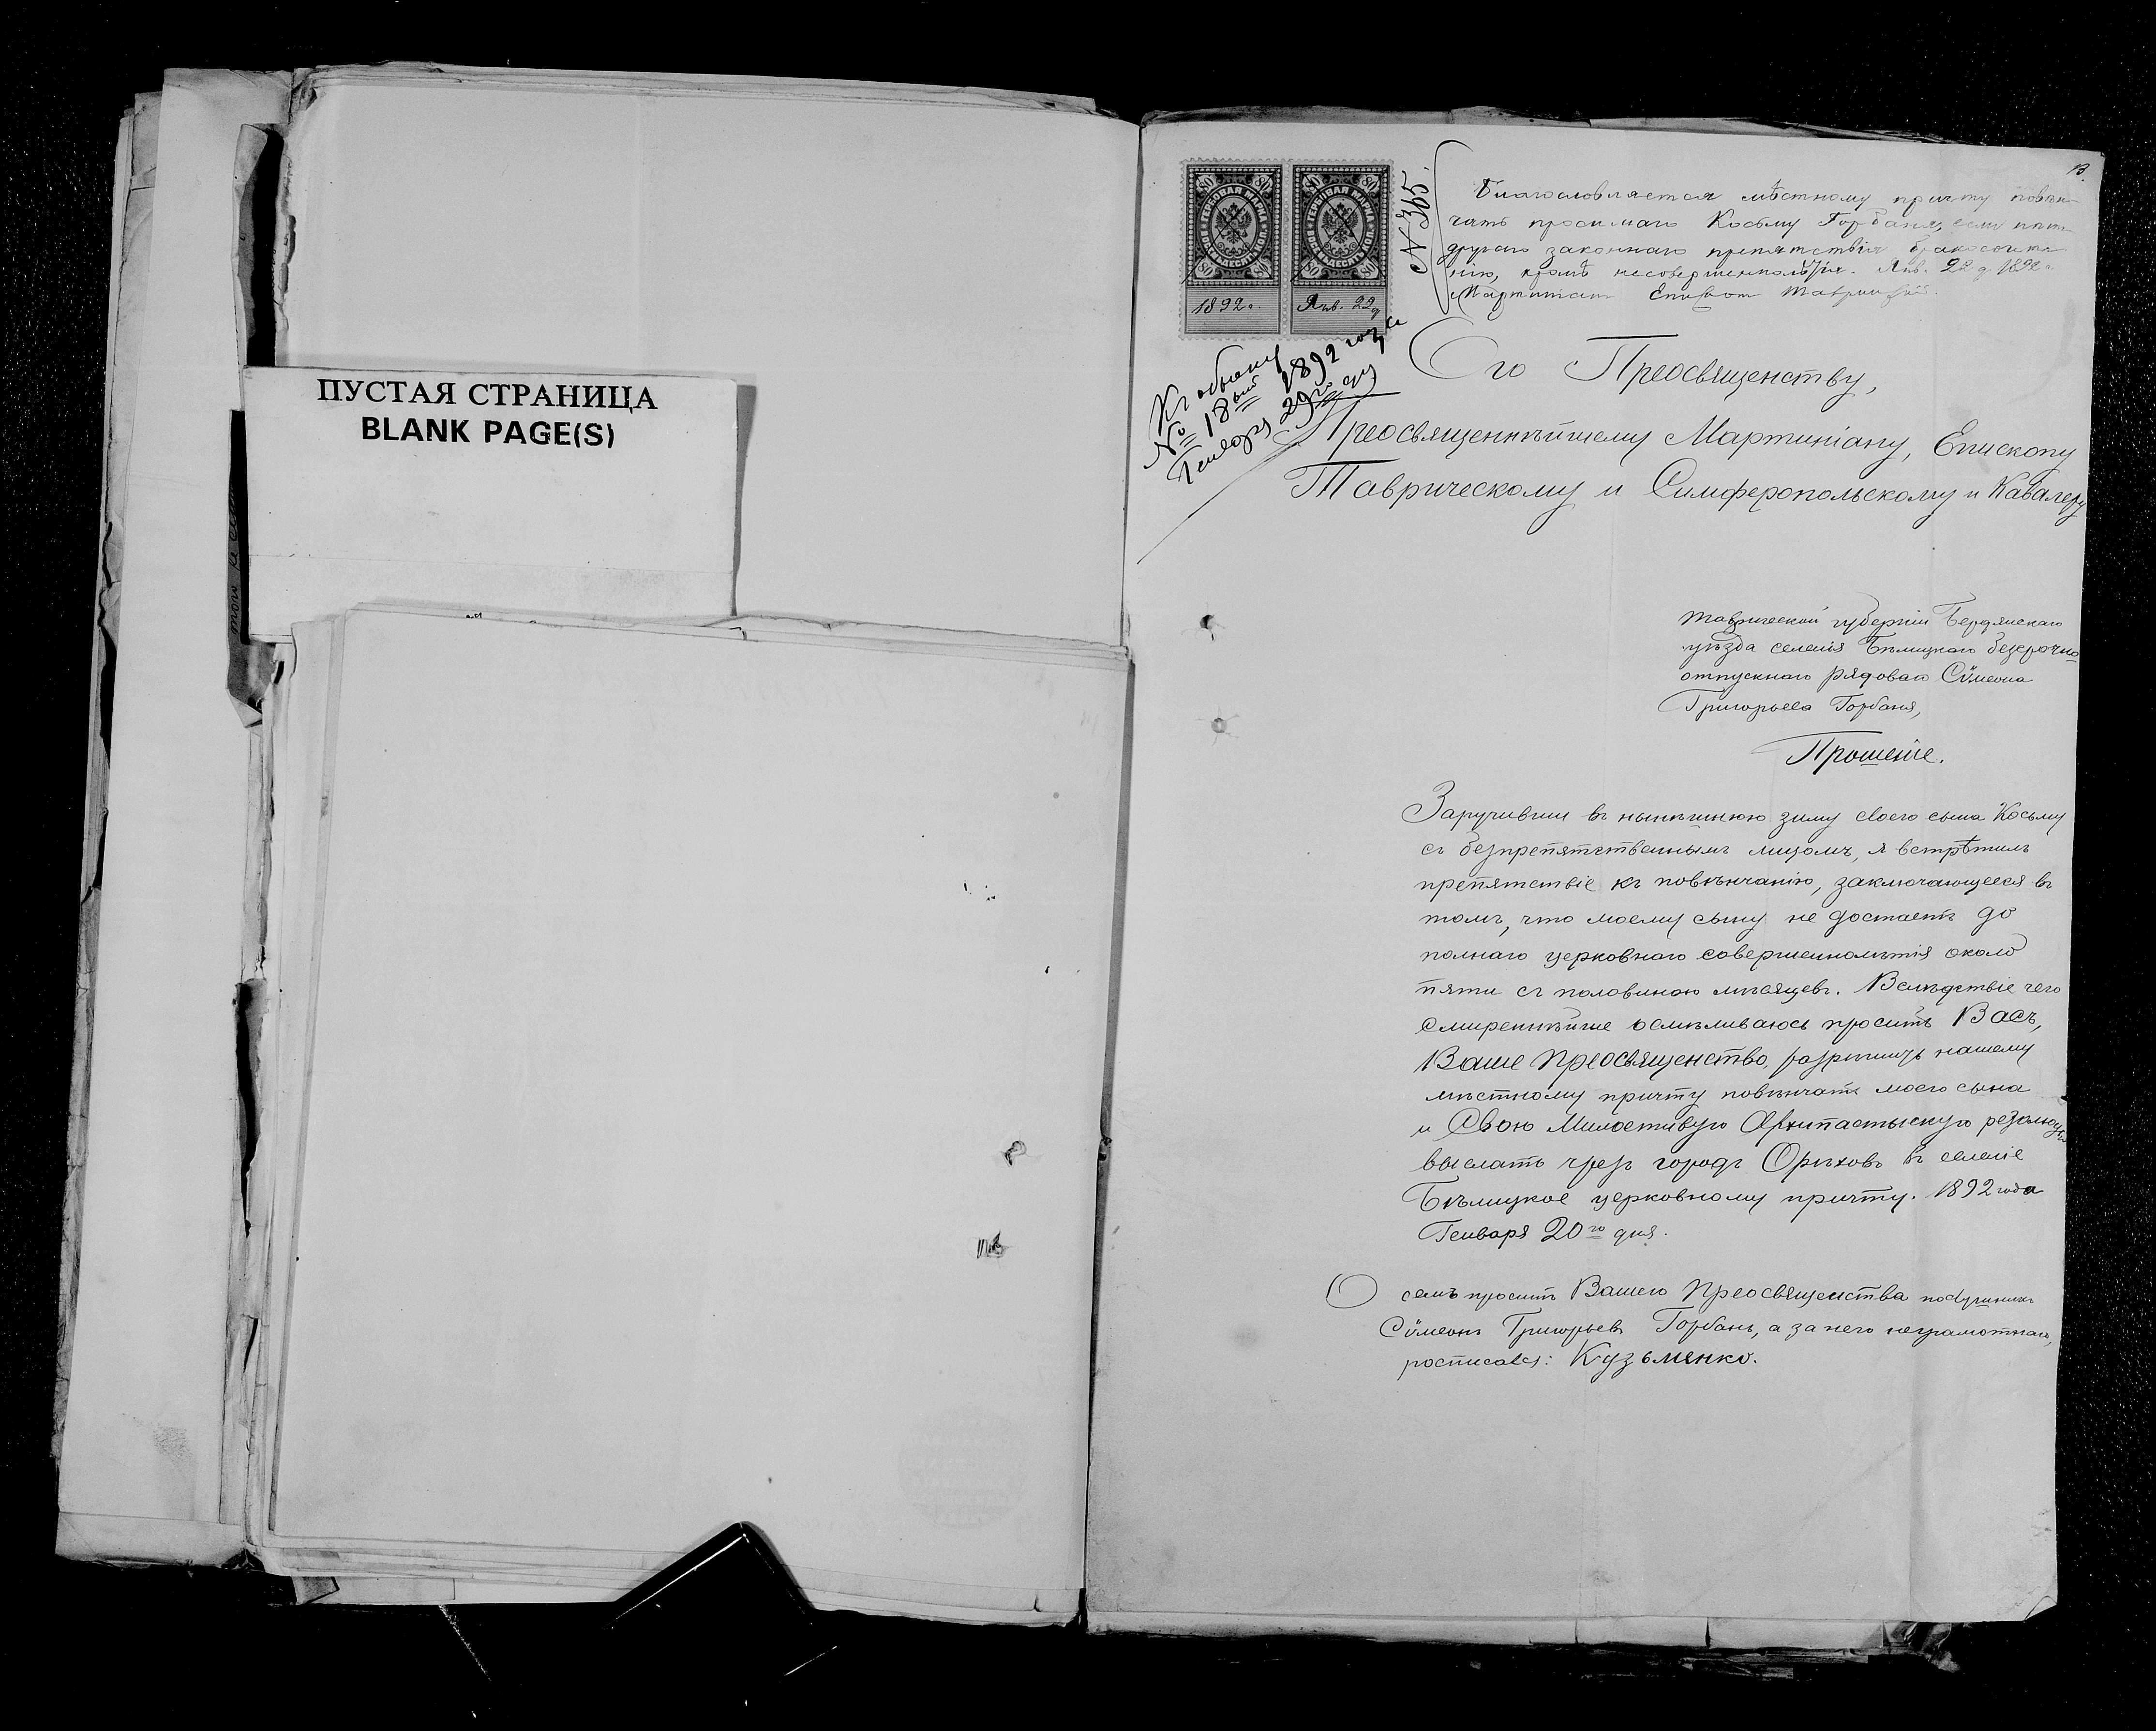 ПУСТАЯ СТРАНИЦА
BLANK PAGE(S)
13.
80 80
ГЕРБОВАЯ МАРКА
80 80
1892 г.
80 80
ГЕРБОВАЯ МАРКА
80 80
Янв. 22 д
№ 365.
Благословляется мѣстному причту повѣн-
чать просимаго Косьму Горбаня, если нѣт
другаго законнаго препятствія бракосочета-
нію, кромѣ несовершеннолѣтія. Янв. 22 д. 1892 г.
Мартиніан Епископ Таврическій.
Къ обыску
№ 18 1892 года
Генваря 29го дня
Его Преосвященству,
Преосвященнѣйшему Мартиніану, Епископу
Таврическому и Симферопольскому и Кавалеру
Таврической губерніи Бердянскаго
уѣзда селенія Бѣлицкаго безсрочно-
отпускнаго рядоваго Сѵмеона
Григорьева Горбаня,
Прошеніе.
Заручивши въ нынѣшнюю зиму своего сына Косьму
съ безпрепятственнымъ лицомъ, я встрѣтилъ
препятствіе къ повѣнчанію, заключающееся въ
томъ, что моему сыну не достаетъ до
полнаго церковнаго совершеннолѣтія около
пяти съ половиною мѣсяцевъ. Вслѣдствіе чего
смиреннѣйше осмѣливаюсь просить Васъ,
Ваше Преосвященство, разрѣшить нашему
мѣстному причту повѣнчать моего сына
и Свою Милостивую Архипастырскую резолюцію
выслать чрезъ городъ Орѣховъ въ селеніе
Бѣлицкое церковному причту. 1892 года
Генваря 20го дня.
О семъ проситъ Вашего Преосвященства
Сѵмеонъ Григорьевъ Горбань, а за него неграмотнаго,
росписался: Кузьменко.